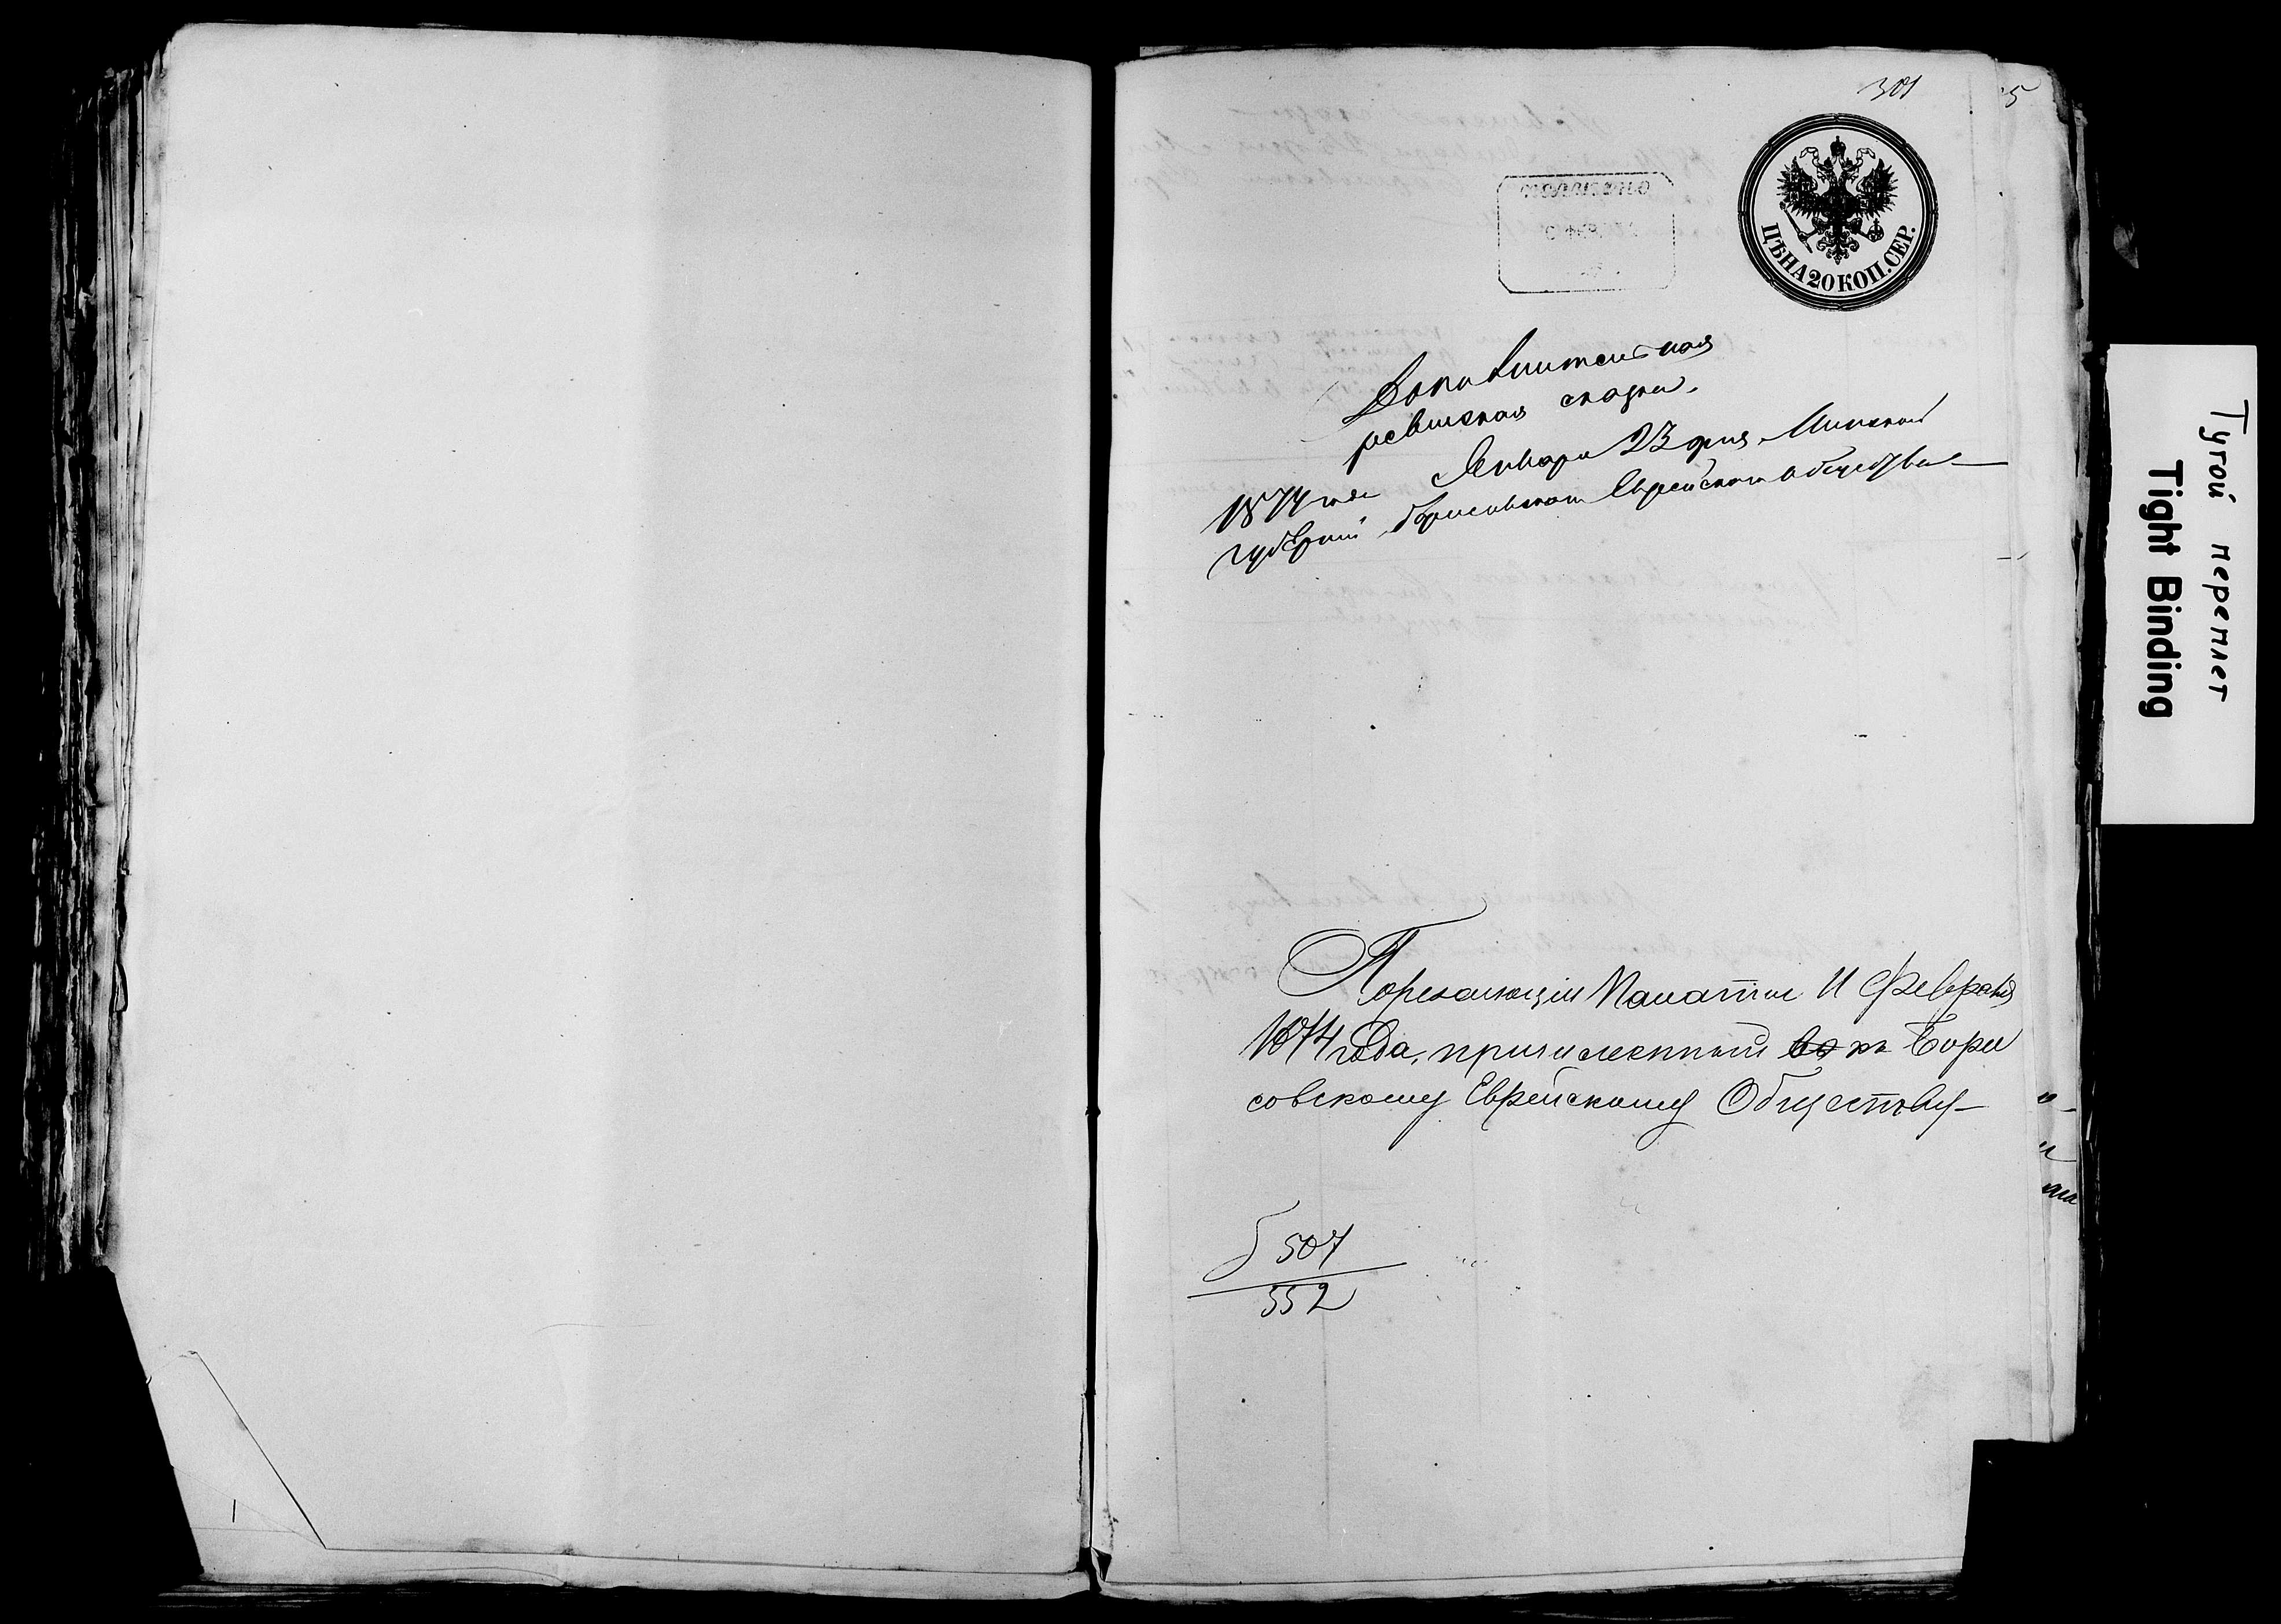 301
5
ЦѢНА 20 КОП. СЕР.
Дополнительная
ревизская сказка.
1874 года Января 23 дня Минской
губерніи Борисовскаго Еврейскаго общества
11 Февраля
1874 года, причисленный къ Бори
совскому Еврейскому Обществу
507
552
Тугой переплет
Tight Binding